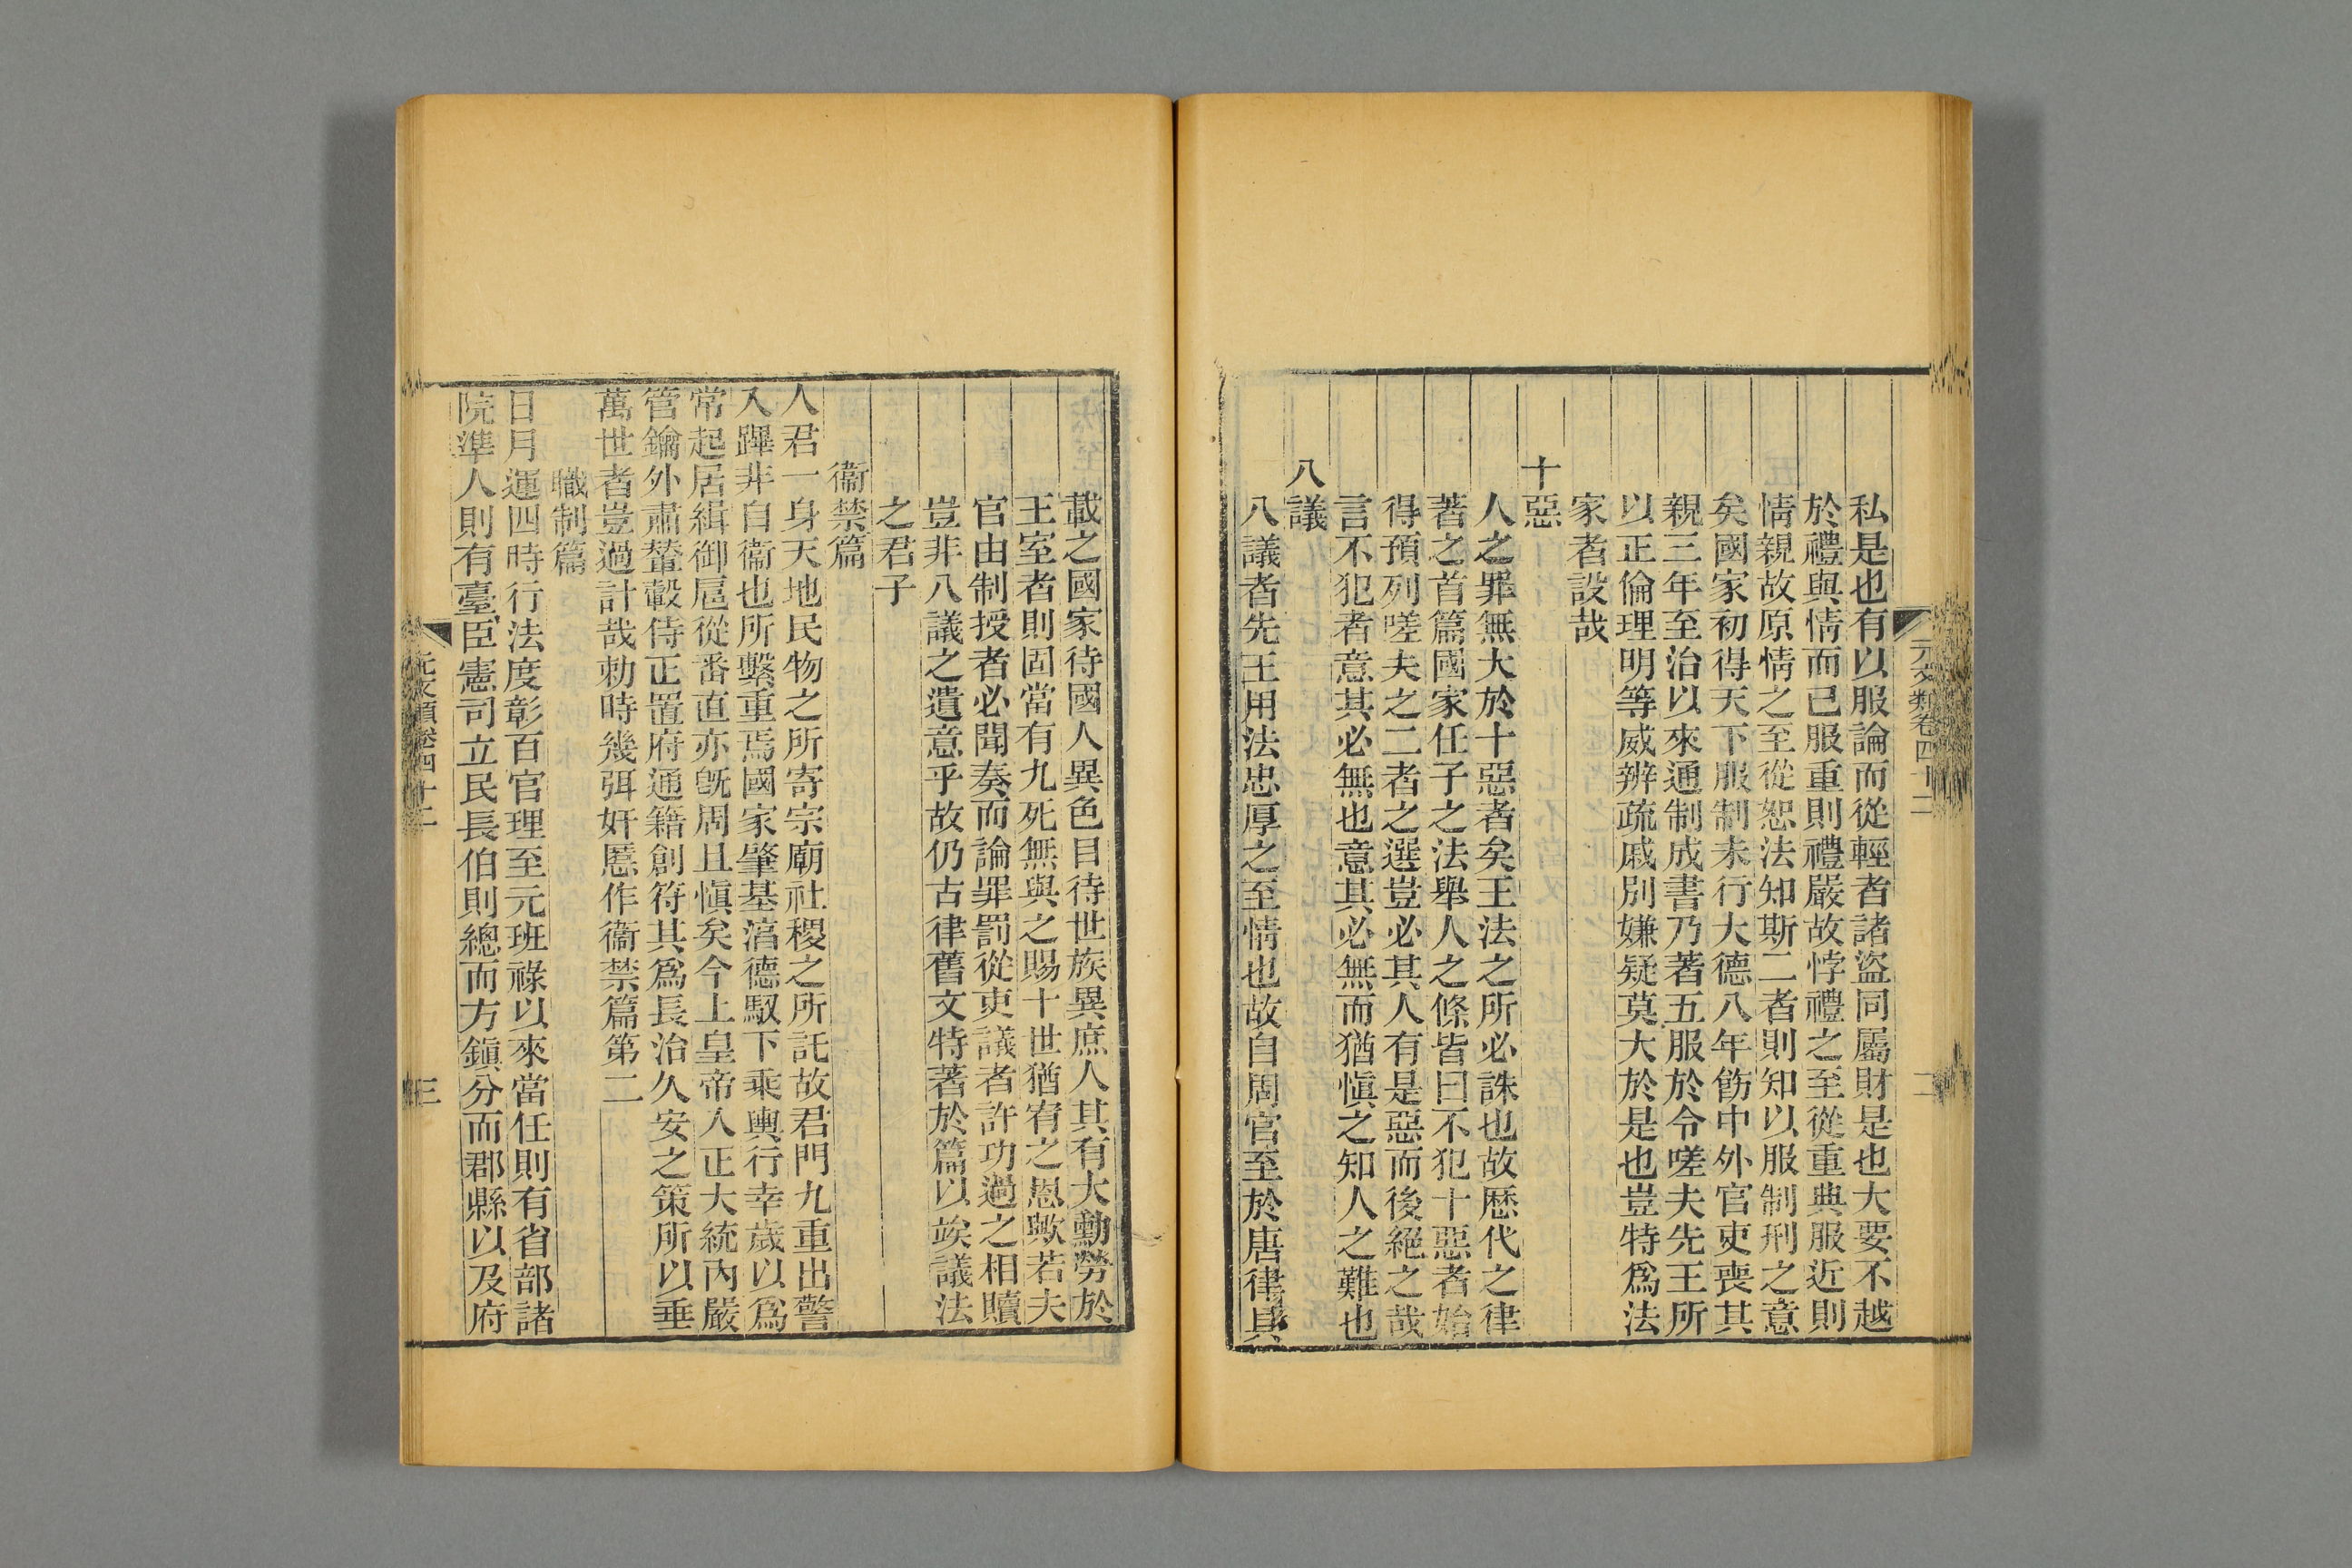 元文類卷四十二
二
私是也有以服論而從輕者諸盜同屬財是也大要不越
於禮與情而已服重則禮嚴故悖禮之至從重典服近則
情親故原情之至從恕法知斯二者則知以服制刑之意
矣國家初得天下服制未行大德八年飭中外官吏喪其
親三年至治以來通制成書乃著五服於令嗟夫先王所
以正倫理明等威辨疏戚別嫌疑莫大於是也豈特爲法
家者設哉
十惡
人之罪無大於十惡者矣王法之所必誅也故歷代之律
著之首篇國家任子之法舉人之條皆曰不犯十惡者始
得預列嗟夫之二者之選豈必其人有是惡而後絕之哉
言不犯者意其必無也意其必無而猶愼之知人之難也
八議
八議者先王用法忠厚之至情也故自周官至於唐律具
載之國家待國人異色目待世族異庶人其有大勳勞於
王室者則固當有九死無與之賜十世猶宥之恩歟若夫
官由制授者必聞奏而論罪罰從吏議者許功過之相贖
豈非八議之遺意乎故仍古律舊文特著於篇以竢議法
之君子
衞禁篇
人君一身天地民物之所寄宗廟社稷之所託故君門九重出警
入蹕非自衞也所繫重焉國家肇基漠德馭下乘輿行幸歲以爲
常起居緝御扈從番直亦旣周且愼矣今上皇帝入正大統內嚴
管鑰外肅輦轂侍正置府通籍創符其爲長治久安之策所以垂
萬世者豈過計哉勅時幾弭奸慝作衞禁篇第二
職制篇
日月運四時行法度彰百官理至元班祿以來當任則有省部諸
院準人則有臺臣憲司立民長伯則總而方鎭分而郡縣以及府
元文類卷四十二
三